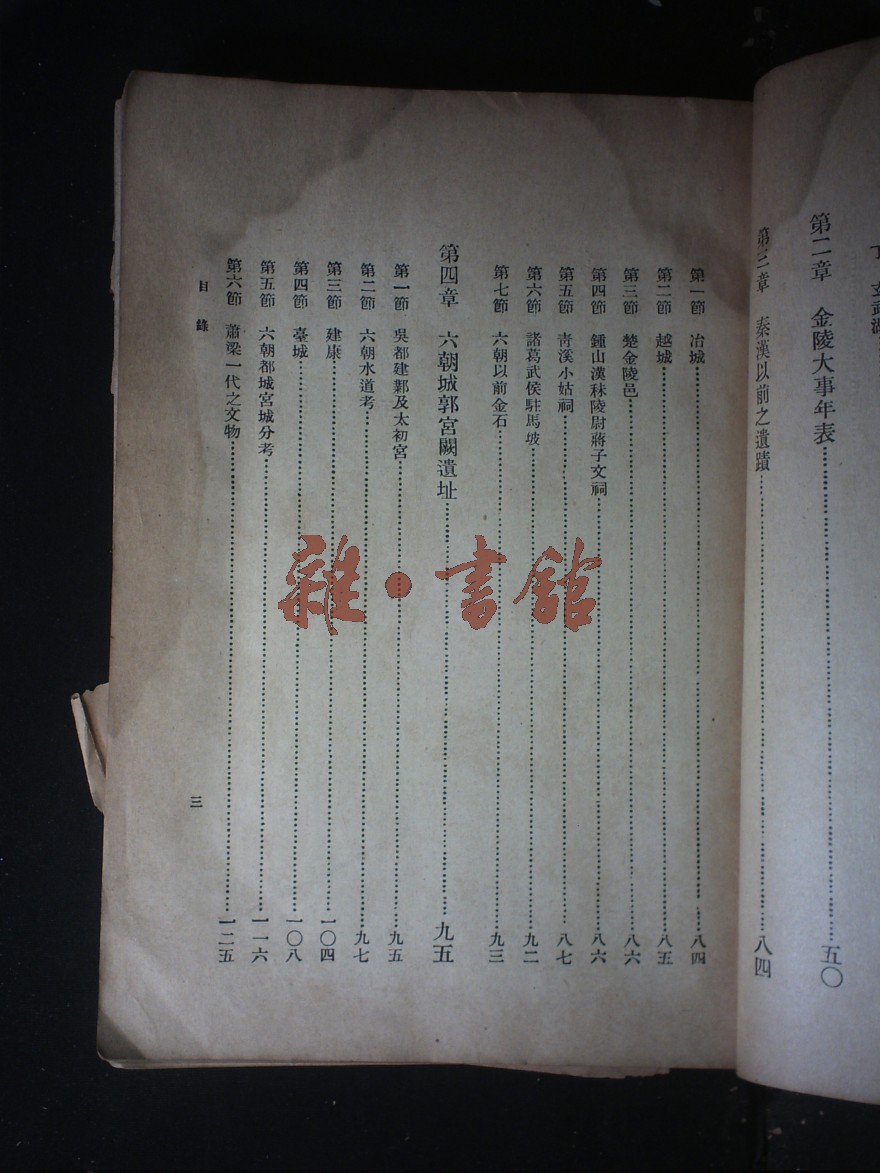 玄武湖
第二章 金陵大事年表 五〇
第三章 秦漢以前之遺蹟 八四
第一節 冶城 八四
第二節 越城 八五
第三節 楚金陵邑 八六
第四節 鍾山漢秣陵尉蔣子文祠 八六
第五節 青溪小姑祠 八七
第六節 諸葛武侯駐馬坡 九二
第七節 六朝以前金石 九三
第四章 六朝城郭宮闕遺址 九五
第一節 吳都建鄴及太初宮 九五
第二節 六朝水道考 九七
第三節 建康 一〇四
第四節 臺城 一〇八
第五節 六朝都城宮城分考 一一六
第六節 蕭梁一代之文物 一二五
目錄 三
雜·書館